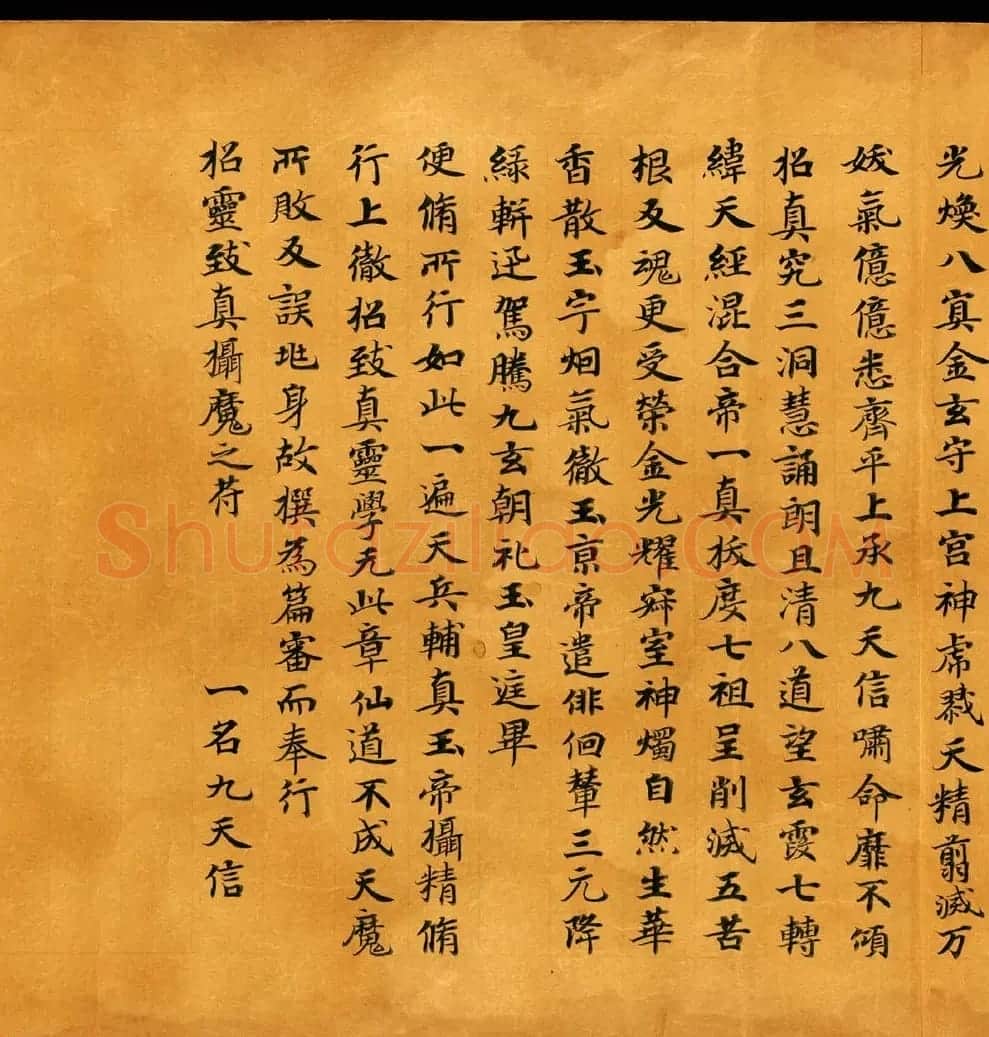 光煥八冥金玄守上宮神虎戮天精翦滅万
妖氣億億悉齊平上承九天信嘯命靡不傾
招真究三洞慧誦朗且清八道望玄霞七轉
緯天經混合帝一真拔度七祖呈削滅五苦
根反魂更受榮金光耀寂室神燭自然生華
香散玉宇烟氣徹玉京帝遣徘徊輦三元降
綠軿迅駕騰九玄朝礼玉皇庭畢
便脩所行如此一遍天兵輔真玉帝攝精脩
行上徹招致真靈學无此章仙道不成天魔
所敗反誤地身故撰為篇審而奉行
招靈致真攝魔之苻 一名九天信
Shufaziliao.COM